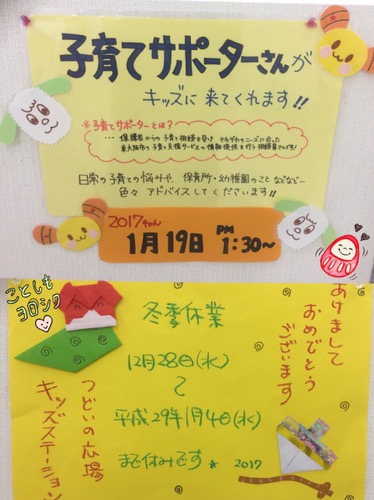 子育てサポーターさんが
キッズに来てくれます!!
※子育てサポーターとは?
・・・保護者からの子育て相談を受け それぞれニーズに合った
東大阪市の子育て支援サービスの情報提供を行う相談員さんです!
日常の子育ての悩みや、保育所・幼稚園のことなどなど…
色々アドバイスしてくださいます!!
2017ねん
1月19日 PM 1:30〜
あけまして
おめでとう
ございます
冬季休業
12月28日(水)
〜
平成29年1月4日(水)
まで休みです★ 2017
ことしも
ヨロシク
つどいの広場
キッズステーション